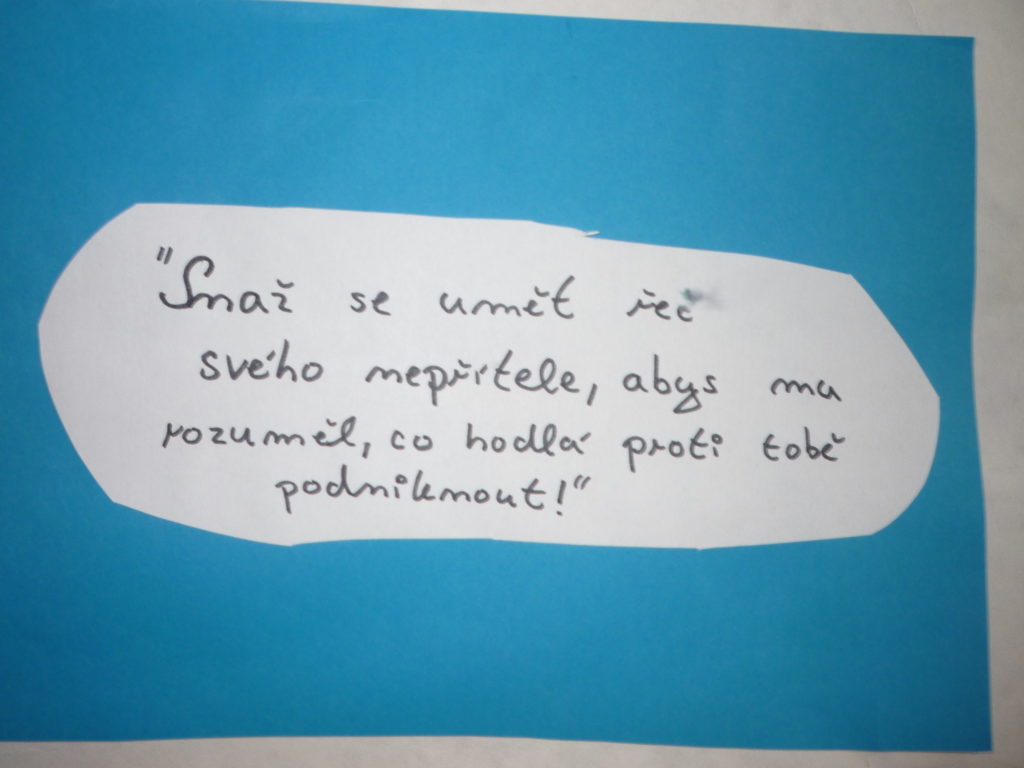 "Snaž se umět řeč
svého nepřítele, abys mu
rozuměl, co hodlá proti tobě
podniknout!"